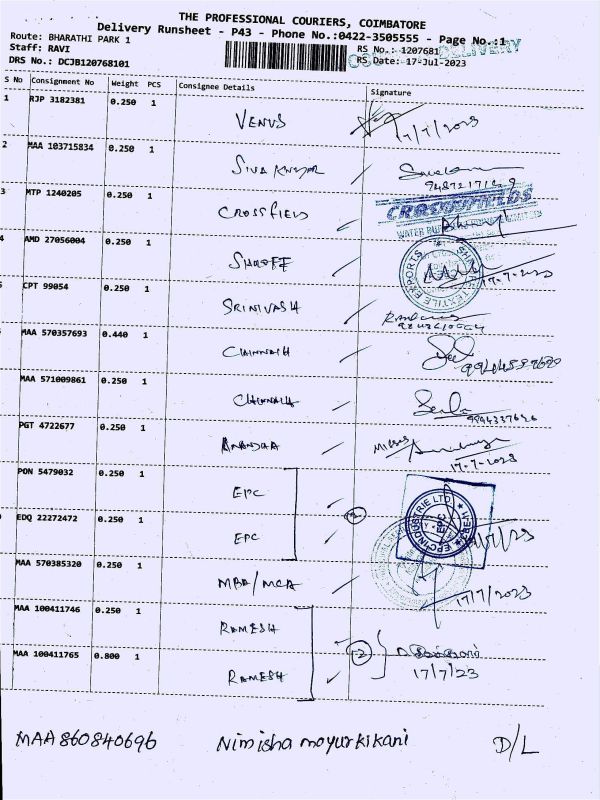 THE PROFESSIONAL COURIERS, COIMBATORE
Delivery Runsheet - P43 - Phone No.:0422-3505555 - Page No.:1
Route: BHARATHI PARK 1
Staff: RAVI RS No.: 1207681 DELIVERY
DRS No.: DCJB120768101 RS Date: 17-Jul-2023
S No Consignment No Weight PCS Consignee Details Signature
1 RJP 3182381 0.250 1 VENUS 17/7/2023
2 MAA 103715834 0.250 1 SIVA KUMAR
3 MTP 1240205 0.250 1 CROSSFIELD CROSSFIELDS
WATER
4 AMD 27056004 0.250 1 TEXTILE EXPORTS 17-7-2023
CPT 99054 0.250 1 SRINIVASH
MAA 570357693 0.440 1
MAA 571009861 0.250 1 9894337626
PGT 4722677 0.250 1 17-7-2023
PON 5479032 0.250 1 EPC
EDQ 22272472 0.250 1 EPC EPC INDUSTRIE LTD.
MAA 570385320 0.250 1 MBA/MCA 17/7/2023
MAA 100411746 0.250 1 RAMESH
MAA 100411765 0.800 1 RAMESH 17/7/23
MAA 860840696 Nimisha mayur kikani D/L